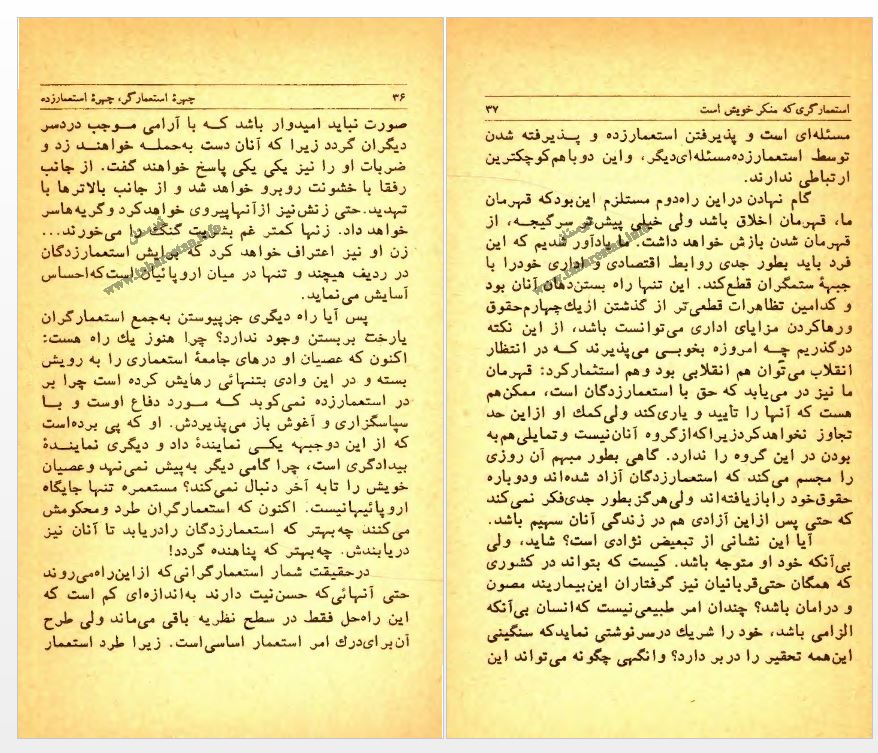 ۳۶ چهرهٔ استعمارگر، چهرهٔ استعمارزده
صورت نباید امیدوار باشد که با آرامی موجب دردسر
دیگران گردد زیرا که آنان دست به‌حمله خواهند زد و
ضربات او را نیز یکی یکی پاسخ خواهند گفت. از جانب
رفقا با خشونت روبرو خواهد شد و از جانب بالاترها با
تهدید. حتی زنش نیز از آنها پیروی خواهد کرد و گریه‌ها سر
خواهد داد. زنها کمتر غم بشریت گنگ را می‌خورند...
زن او نیز اعتراف خواهد کرد که برایش استعمارزدگان
در ردیف هیچند و تنها در میان اروپائیان است که احساس
آسایش می‌نماید.
پس آیا راه دیگری جز پیوستن به‌جمع استعمارگران
یارخت بربستن وجود ندارد؟ چرا هنوز یك راه هست:
اکنون که عصیان او درهای جامعهٔ استعماری را به رویش
بسته و در این وادی بتنهائی رهایش کرده است چرا بر
در استعمارزده نمی‌کوبد که مورد دفاع اوست و با
سپاسگزاری و آغوش باز می‌پذیردش. او که پی برده‌است
که از این دوجبهه یکی نمایندهٔ داد و دیگری نمایندهٔ
بیدادگری است، چرا گامی دیگر به‌پیش نمی‌نهد و عصیان
خویش را تابه آخر دنبال نمی‌کند؟ مستعمره تنها جایگاه
اروپائیها نیست. اکنون که استعمارگران طرد و محکومش
می‌کنند چه‌بهتر که استعمارزدگان را دریابد تا آنان نیز
دریابندش. چه‌بهتر که پناهنده گردد!
درحقیقت شمار استعمارگرانی که از این راه می‌روند
حتی آنهائی‌که حسن‌نیت دارند به‌اندازه‌ای کم است که
این راه‌حل فقط در سطح نظریه باقی می‌ماند ولی طرح
آن برای درك امر استعمار اساسی است. زیرا طرد استعمار
استعمارگری که منکر خویش است ۳۷
مسئله‌ای است و پذیرفتن استعمارزده و پذیرفته شدن
توسط استعمارزده مسئله‌ای دیگر، و این دو باهم کوچکترین
ارتباطی ندارند.
گام نهادن در این راه دوم مستلزم این بود که قهرمان
ما، قهرمان اخلاق باشد ولی خیلی پیش‌تر سرگیجه، از
قهرمان شدن بازش خواهد داشت. ما یادآور شدیم که این
فرد باید بطور جدی روابط اقتصادی و اداری خود را با
جبههٔ ستمگران قطع کند. این تنها راه بستن دهان آنان بود
و کدامین تظاهرات قطعی‌تر از گذشتن از یك چهارم حقوق
و رها کردن مزایای اداری می‌توانست باشد، از این نکته
درگذریم چه امروزه بخوبی می‌پذیرند که در انتظار
انقلاب می‌توان هم انقلابی بود و هم استثمار کرد: قهرمان
ما نیز در می‌یابد که حق با استعمارزدگان است، ممکن هم
هست که آنها را تایید و یاری کند ولی کمك او از این حد
تجاوز نخواهد کرد زیرا که از گروه آنان نیست و تمایلی هم به
بودن در این گروه را ندارد. گاهی بطور مبهم آن روزی
را مجسم می‌کند که استعمارزدگان آزاد شده‌اند و دوباره
حقوق خود را بازیافته‌اند ولی هرگز بطور جدی فکر نمی‌کند
که حتی پس از این آزادی هم در زندگی آنان سهیم باشد.
آیا این نشانی از تبعیض نژادی است؟ شاید، ولی
بی‌آنکه خود او متوجه باشد. کیست که بتواند در کشوری
که همگان حتی قربانیان نیز گرفتاران این بیماریند مصون
و در امان باشد؟ چندان امر طبیعی نیست که انسان بی‌آنکه
الزامی باشد، خود را شریك در سرنوشتی نماید که سنگینی
این همه تحقیر را در بر دارد؟ وانگهی چگونه می‌تواند این